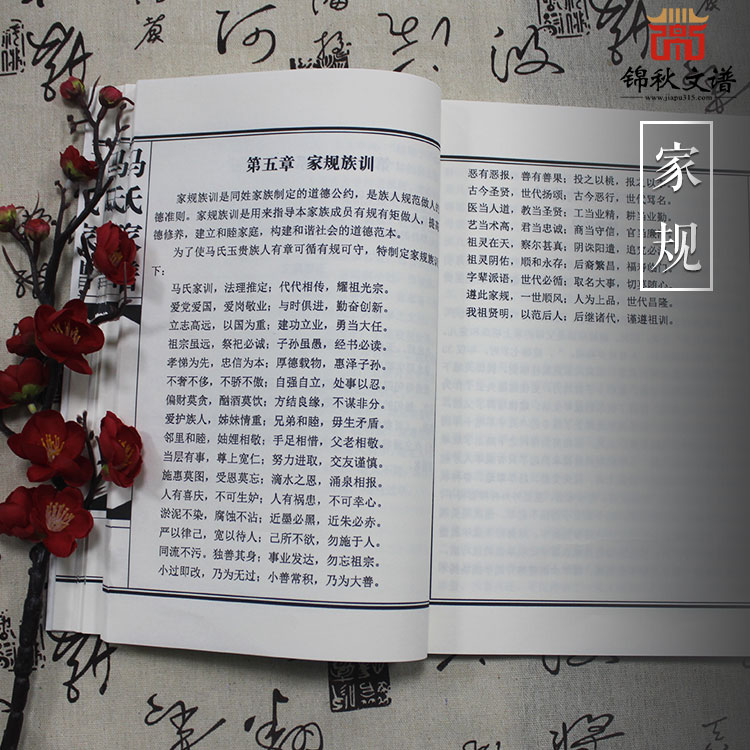 锦秋文谱
www.jiapu315.com
家规
第五章 家规族训
家规族训是同姓家族制定的道德公约，是族人规范做人的
德准则。家规族训是用来指导本家族成员有规有矩做人，提高
德修养，建立和睦家庭，构建和谐社会的道德范本。
为了使马氏玉贵族人有章可循有规可守，特制定家规族训
下：
马氏家训，法理推定；代代相传，耀祖光宗。
爱党爱国，爱岗敬业；与时俱进，勤奋创新。
立志高远，以国为重；建功立业，勇当大任。
祖宗虽远，祭祀必诚；子孙虽愚，经书必读。
孝悌为先，忠信为本；厚德载物，惠泽子孙。
不奢不侈，不骄不傲；自强自立，处事以忍。
偏财莫贪，酗酒莫饮；方结良缘，不谋非分。
爱护族人，姊妹情重；兄弟和睦，毋生矛盾。
邻里和睦，妯娌相敬；手足相惜，父老相敬。
当层有事，尊上宽仁；努力进取，交友谨慎。
施惠莫图，受恩莫忘；滴水之恩，涌泉相报。
人有喜庆，不可生妒；人有祸患，不可幸心。
淤泥不染，腐蚀不沾；近墨必黑，近朱必赤。
严以律己，宽以待人；己所不欲，勿施于人。
同流不污。独善其身；事业发达，勿忘祖宗。
小过即改，乃为无过；小善常积，乃为大善。
恶有恶报，善有善果；投之以桃，报之以
古今圣贤，世代扬颂；古今恶行，世代骂名。
医当人道，教当圣贤；工当业精，耕当业勤。
艺当术高，君当忠诚；商当守信，官当
祖灵在天，察尔甚真；阴诛阳遣，追
祖灵阴佑，顺和永存；后裔繁昌，福
字辈派语，世代必循；取名大事，切莫随心。
遵此家规，一世顺风；人为上品，世代昌隆。
我祖贤明，以范后人；后继诸代，谨遵祖训。